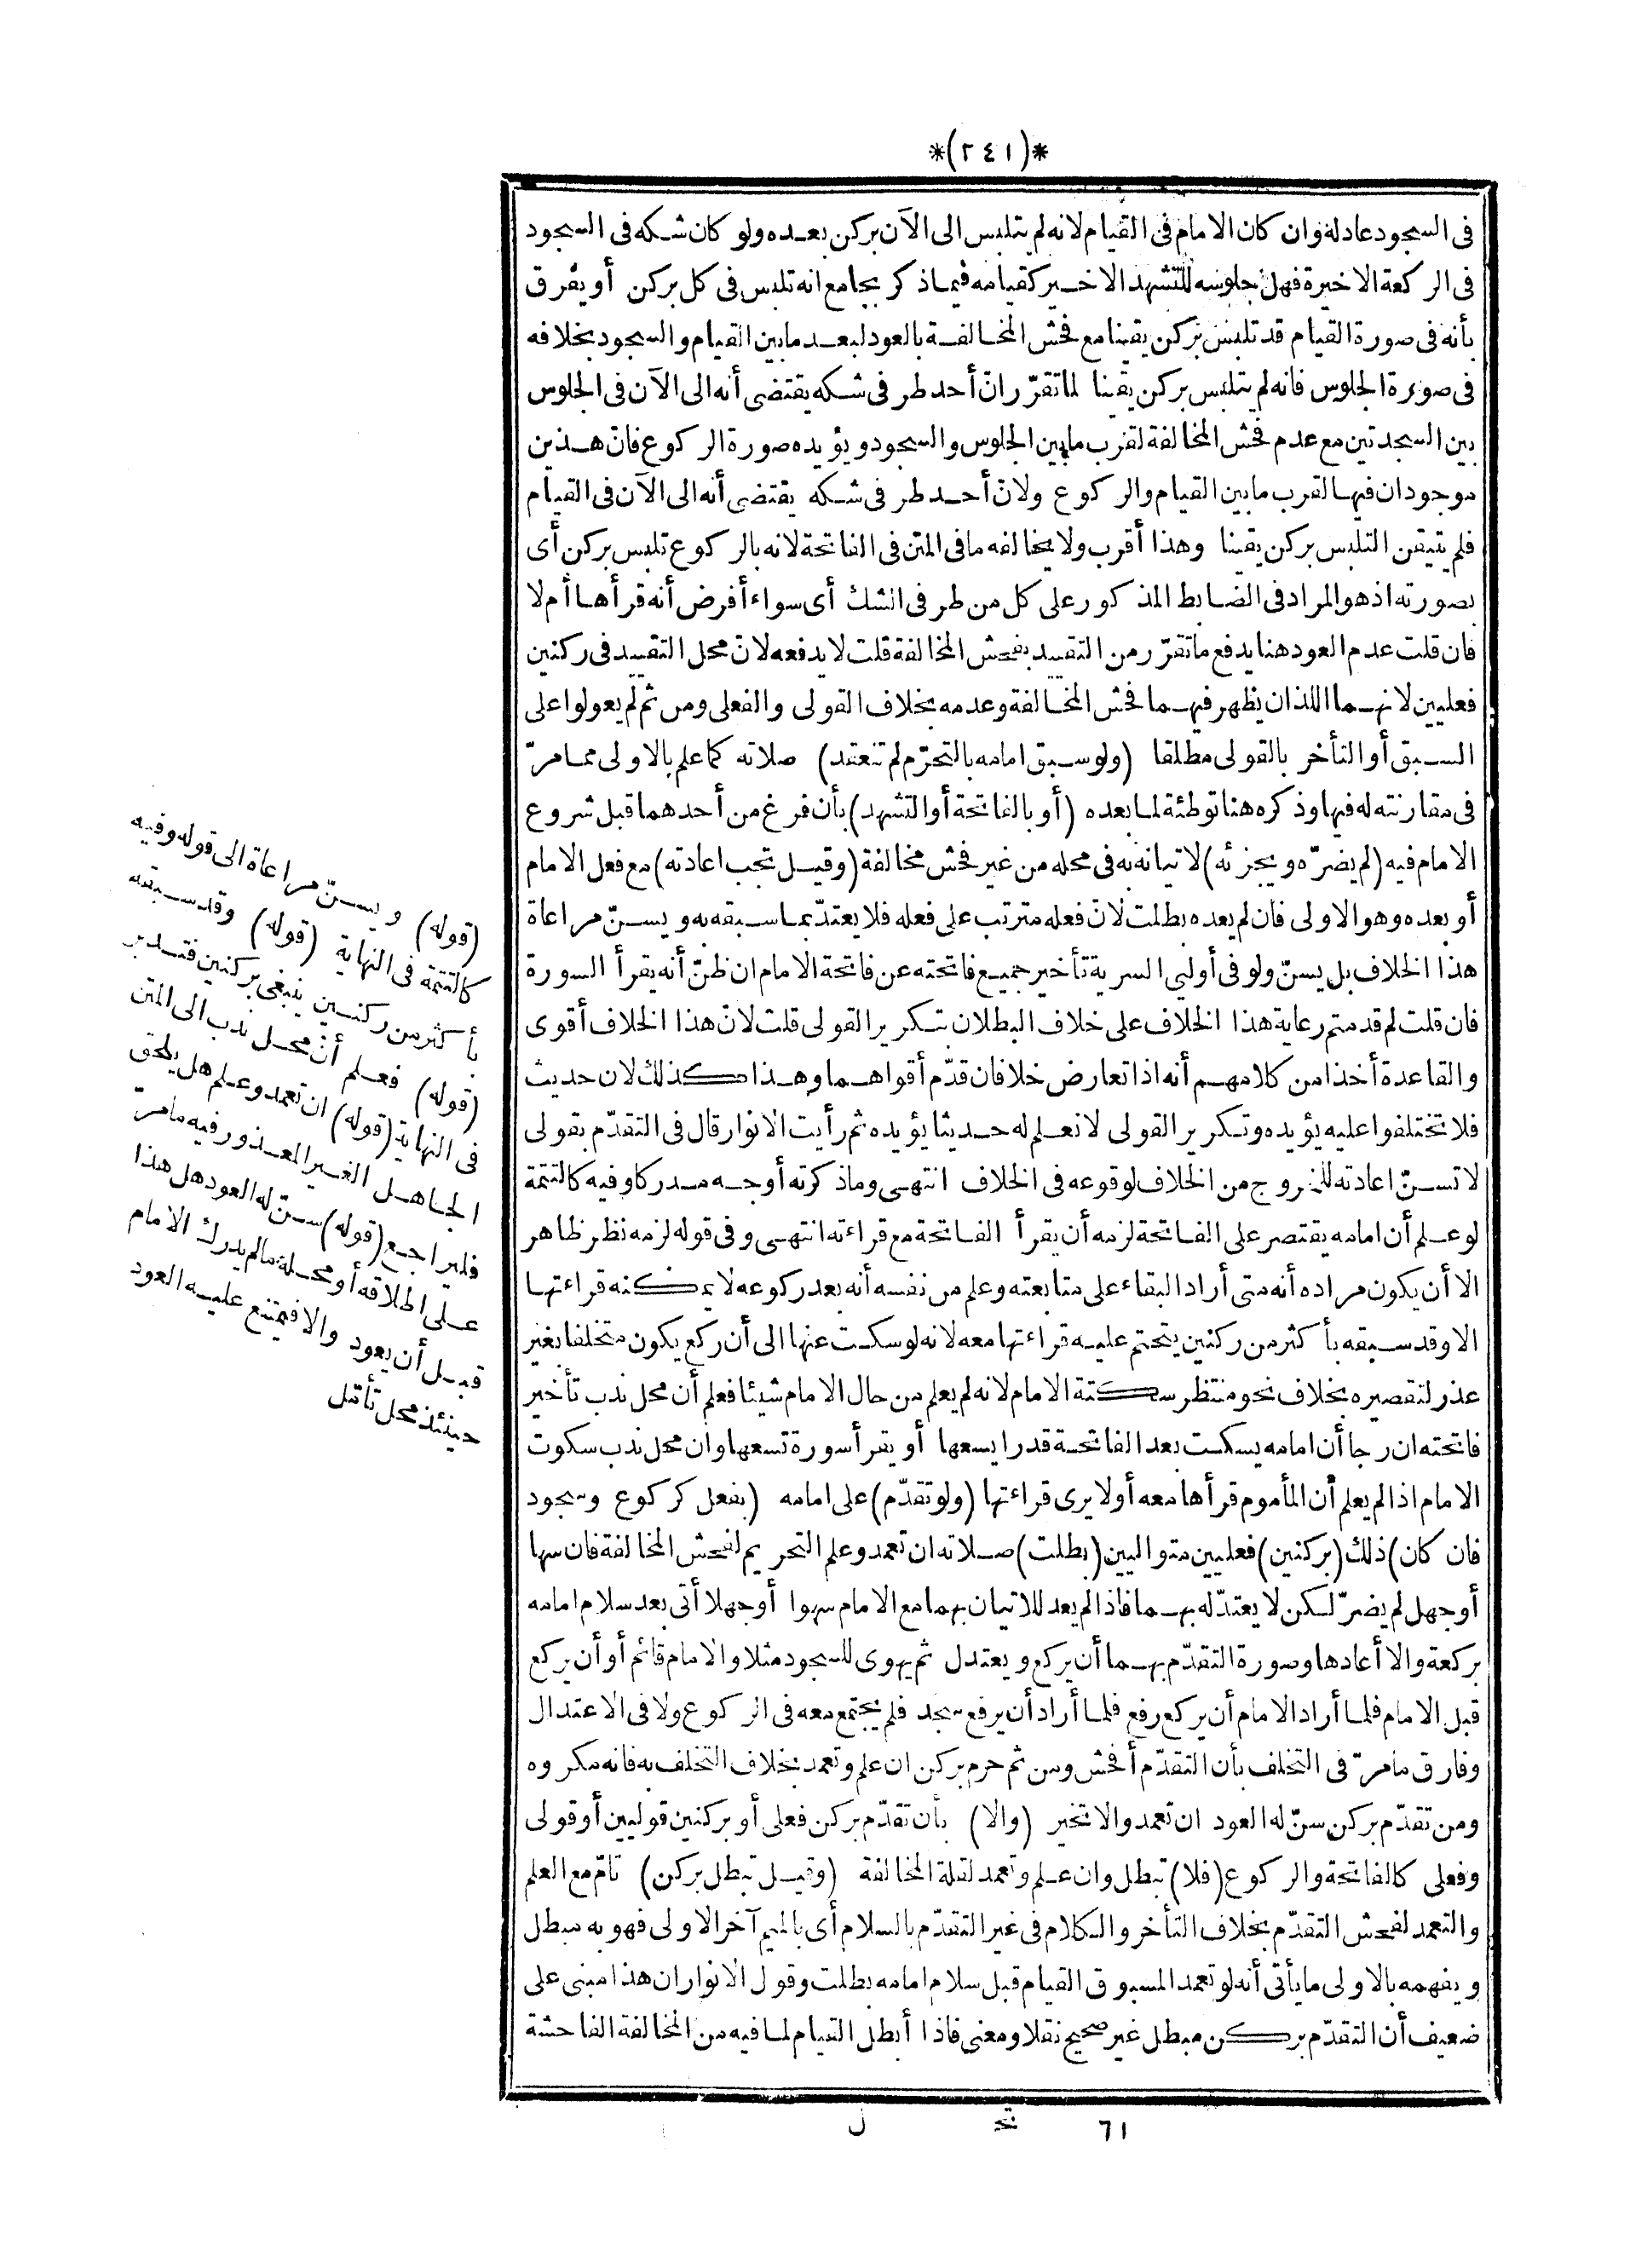 *(٢٤١)*
فى السجود عاد له وان كان الامام فى القيام لانه لم يتلبس الى الآن بركن بعده ولو كان شكه فى السجود
فى الركعة الاخيرة فهل جلوسه للتشهد الاخير كقيامه فيما ذكر بجامع انه تلبس فى كل بركن أو يفرق
بأنه فى صورة القيام قد تلبس بركن يقينا مع فحش المخالفة بالعود لبعد ما بين القيام والسجود بخلافه
فى صورة الجلوس فانه لم يتلبس بركن يقينا لما تقرّر انّ أحد طرفى شكه يقتضى أنه الى الآن فى الجلوس
بين السجدتين مع عدم فحش المخالفة لقرب ما بين الجلوس والسجود ويؤيده صورة الركوع فانّ هذين
موجودان فيها لقرب ما بين القيام والركوع ولانّ أحد طرفى شكه يقتضى أنه الى الآن فى القيام
فلم يتيقن التلبس بركن يقينا وهذا أقرب ولا يخالفه ما فى المتن فى الفاتحة لانه بالركوع تلبس بركن أى
بصورته اذ هو المراد فى الضابط المذكور على كل من طرفى الشك أى سواء أفرض أنه قرأها أم لا
فان قلت عدم العود هنا يدفع ما تقرّر من التقييد بفحش المخالفة قلت لا يدفعه لانّ محل التقييد فى ركنين
فعليين لانهما اللذان يظهر فيهما فحش المخالفة وعدمه بخلاف القولى والفعلى ومن ثم لم يعولوا على
السبق أو التأخر بالقولى مطلقا (ولو سبق امامه بالتحرّم لم تنعقد) صلاته كما علم بالاولى مما مرّ
فى مقارنته له فيها وذكره هنا توطئة لما بعده (أو بالفاتحة أو التشهد) بأن فرغ من أحدهما قبل شروع
الامام فيه (لم يضرّه ويجزئه) لاتيانه به فى محله من غير فحش مخالفة (وقيل تجب اعادته) مع فعل الامام
أو بعده وهو الاولى فان لم يعده بطلت لانّ فعله مترتب على فعله فلا يعتدّ بما سبقه به ويسنّ مراعاة
هذا الخلاف بل يسنّ ولو فى أوليى السرية تأخير جميع فاتحته عن فاتحة الامام ان ظنّ أنه يقرأ السورة
فان قلت لم قدمتم رعاية هذا الخلاف على خلاف البطلان بتكرير القولى قلت لانّ هذا الخلاف أقوى
والقاعدة أخذا من كلامهم أنه اذا تعارض خلافان قدّم أقواهما وهذا كذلك لان حديث
فلا تختلفوا عليه يؤيده وتكرير القولى لا نعلم له حديثا يؤيده ثم رأيت الانوار قال فى التقدّم بقولى
لا تسنّ اعادته للخروج من الخلاف لوقوعه فى الخلاف انتهى وما ذكرته أوجه مدركا وفيه كالتتمة
لو علم أن امامه يقتصر على الفاتحة لزمه أن يقرأ الفاتحة مع قراءته انتهى وفى قوله لزمه نظر ظاهر
الا أن يكون مراده أنه متى أراد البقاء على متابعته وعلم من نفسه أنه بعد ركوعه لا يمكنه قراءتها
الا وقد سبقه بأكثر من ركنين يتحتم عليه قراءتها معه لانه لو سكت عنها الى أن ركع يكون متخلفا بغير
عذر لتقصيره بخلاف نحو منتظر سكتة الامام لانه لم يعلم من حال الامام شيئا فعلم أن محل ندب تأخير
فاتحته ان رجا أن امامه يسكت بعد الفاتحة قدرا يسعها أو يقرأ سورة تسعها وان محل ندب سكوت
الامام اذا لم يعلم أن المأموم قرأها معه أو لا يرى قراءتها (ولو تقدّم) على امامه (بفعل كركوع وسجود
فان كان) ذلك (بركنين) فعليين متواليين (بطلت) صلاته ان تعمد وعلم التحريم لفحش المخالفة فان سها
أو جهل لم يضرّ لكن لا يعتدّ له بهما فاذا لم يعد للاتيان بهما مع الامام سهوا أو جهلا أتى بعد سلام امامه
بركعة والا أعادها وصورة التقدّم بهما أن يركع ويعتدل ثم يهوى للسجود مثلا والامام قائم أو أن يركع
قبل الامام فلما أراد الامام أن يركع رفع فلما أراد أن يرفع سجد فلم يجتمع معه فى الركوع ولا فى الاعتدال
وفارق ما مرّ فى التخلف بأن التقدّم أفحش ومن ثم حرم بركن ان علم وتعمد بخلاف التخلف به فانه مكروه
ومن تقدّم بركن سنّ له العود ان تعمد والا تخير (والا) بأن تقدّم بركن فعلى أو بركنين قوليين أو قولى
وفعلى كالفاتحة والركوع (فلا) تبطل وان علم وتعمد لقلة المخالفة (وقيل تبطل بركن) تامّ مع العلم
والتعمد لفحش التقدّم بخلاف التأخر والكلام فى غير التقدّم بالسلام أى بالميم آخر الاولى فهو به مبطل
ويفهمه بالاولى ما يأتى أنه لو تعمد المسبوق القيام قبل سلام امامه بطلت وقول الانوار ان هذا مبنى على
ضعيف أن التقدّم بركن مبطل غير صحيح نقلا ومعنى فاذا أبطل القيام لما فيه من المخالفة الفاحشة
٦١ تحـ ل
(قوله) ويسنّ مراعاة الى قوله وفيه
كالتتمة فى النهاية (قوله) وقد سبقه
بأكثر من ركنين ينبغى بركنين فتدبر
(قوله) فعلم أنّ محل ندب الى المتن
فى النهاية (قوله) ان تعمد وعلم هل يلحق
الجاهل الغير المعذور فيه ما مرّ
فليراجع (قوله) سنّ له العود هل هذا
على اطلاقه أو محله ما لم يدرك الامام
قبل أن يعود والا فيمتنع عليه العود
حينئذ محل تأمّل